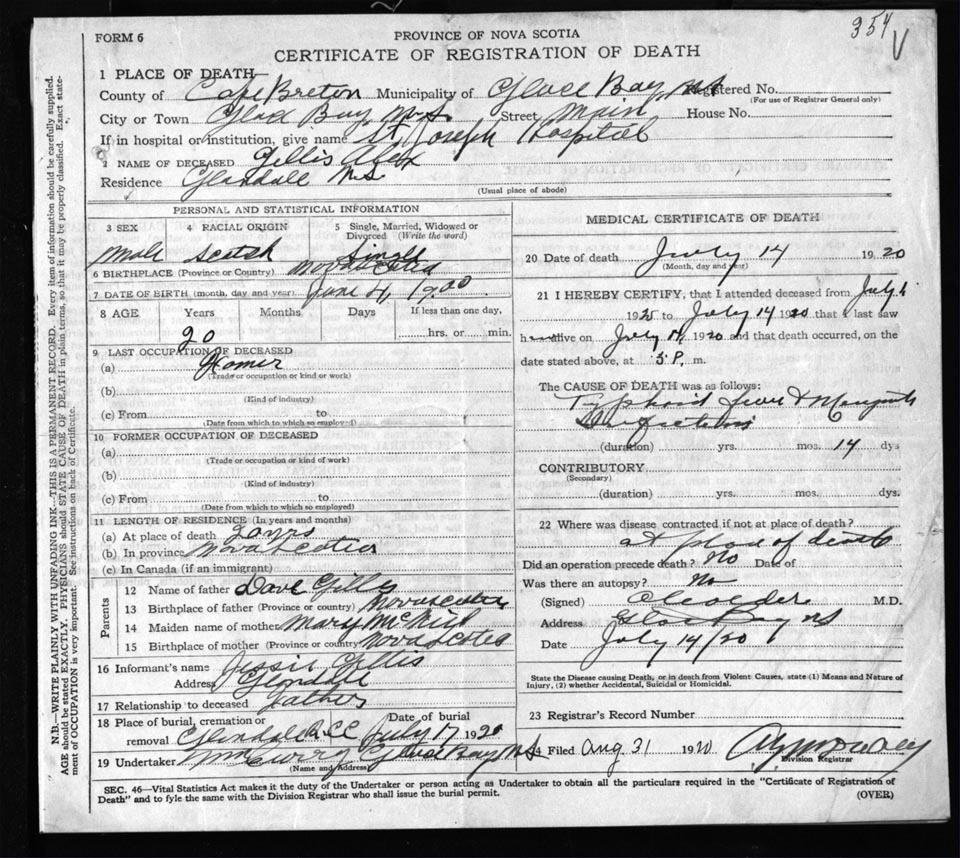 354
FORM 6
PROVINCE OF NOVA SCOTIA
CERTIFICATE OF REGISTRATION OF DEATH
1 PLACE OF DEATH
County of Cape Breton Municipality of Glace Bay, N.S Registered No.
(For use of Registrar General only)
City or Town Glace Bay N.S Street Main House No.
If in hospital or institution, give name St Joseph Hospital
2 NAME OF DECEASED Gillis Alex
Residence Glendale N.S
(Usual place of abode)
PERSONAL AND STATISTICAL INFORMATION
3 SEX 4 RACIAL ORIGIN 5 Single, Married, Widowed or Divorced (Write the word)
Male Scotch Single
6 BIRTHPLACE (Province or Country) Nova Scotia
7 DATE OF BIRTH (month, day and year) June 4, 1900
8 AGE Years Months Days If less than one day,
20 hrs. or min.
9 LAST OCCUPATION OF DECEASED
(a)
(Trade or occupation or kind or work)
(b)
(Kind of industry)
(c) From to
(Date from which to which so employed)
10 FORMER OCCUPATION OF DECEASED
(a)
(Trade or occupation or kind of work)
(b)
(Kind of industry)
(c) From to
(Date from which to which so employed)
11 LENGTH OF RESIDENCE (In years and months)
(a) At place of death
(b) In province Nova Scotia
(c) In Canada (if an immigrant)
Parents
12 Name of father Dave Gillis
13 Birthplace of father (Province or country) Nova Scotia
14 Maiden name of mother Mary
15 Birthplace of mother (Province or country) Nova Scotia
16 Informant's name Jessie Gillis
Address Glendale
17 Relationship to deceased
18 Place of burial, cremation or Date of burial
removal Glendale July 17 1920
19 Undertaker Glace Bay N S
(Name and Address)
MEDICAL CERTIFICATE OF DEATH
20 Date of death July 14 1920
(Month, day and year)
21 I HEREBY CERTIFY, that I attended deceased from July
19 to July 14 1920 that I last saw
h alive on July 1920 and that death occurred, on the
date stated above, at 5 P. m.
The CAUSE OF DEATH was as follows:
Typhoid Fever &
(duration) yrs. mos. 14 dys
CONTRIBUTORY
(Secondary)
(duration) yrs. mos. dys.
22 Where was disease contracted if not at place of death?
at place of death
Did an operation precede death? No Date of
Was there an autopsy? No
(Signed) M.D.
Address Glace Bay NS
Date July 14/20
State the Disease causing Death, or in death from Violent Causes, state (1) Means and Nature of
Injury, (2) whether Accidental, Suicidal or Homicidal.
23 Registrar's Record Number
24 Filed Aug 31 1920
Division Registrar
SEC. 46—Vital Statistics Act makes it the duty of the Undertaker or person acting as Undertaker to obtain all the particulars required in the "Certificate of Registration of
Death" and to fyle the same with the Division Registrar who shall issue the burial permit.
(OVER)
N.B.—WRITE PLAINLY WITH UNFADING INK—THIS IS A PERMANENT RECORD. Every item of information should be carefully supplied.
AGE should be stated EXACTLY. PHYSICIANS should STATE CAUSE OF DEATH in plain terms, so that it may be properly classified. Exact statement of OCCUPATION is very important. See instructions on back of Certificate.